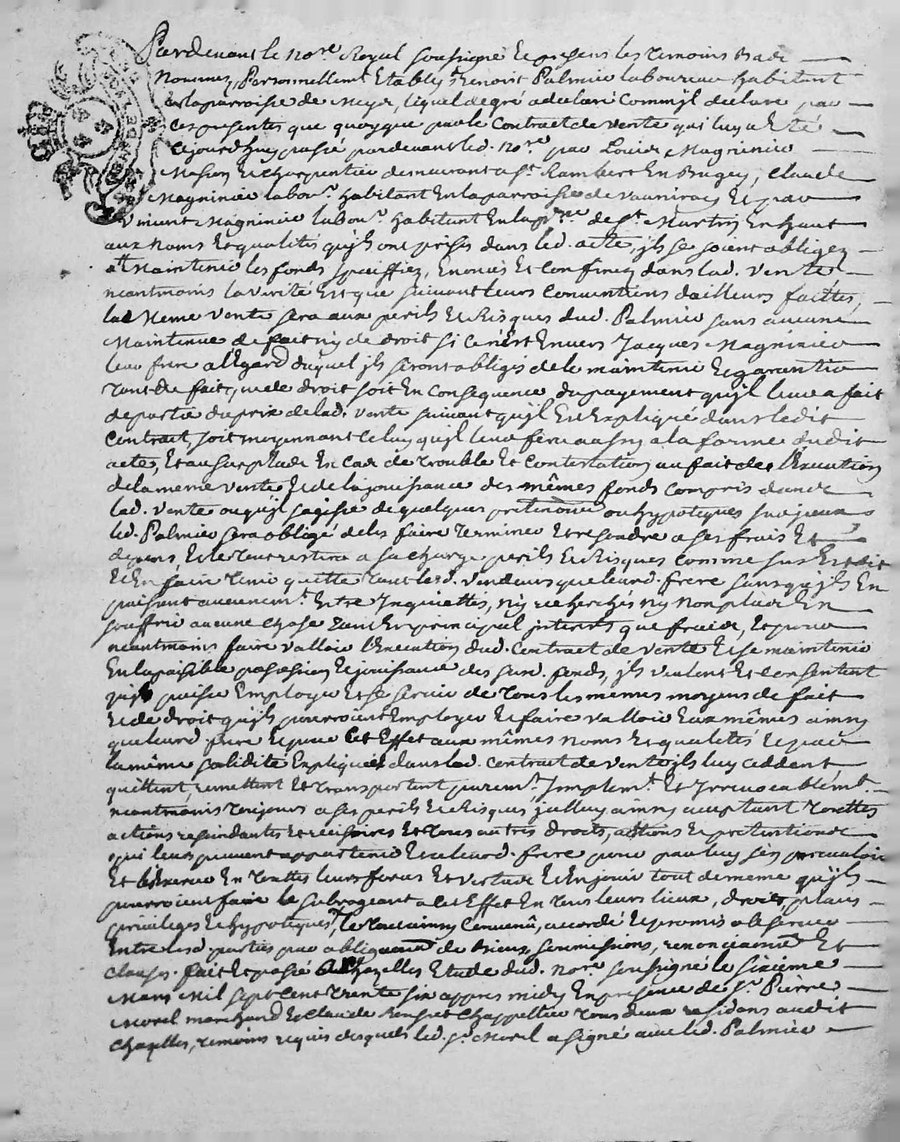 Pardevant le no.re Royal soussigné et presens les temoins Bas
Nommez, Personnellem.t Estably s.r Benoist Palmier laboureur habitant
en la parroisse de Meys, lequel de gré a declaré Comm'jl declare par
ces presentes que quoyque par le Contract de vente qui luy a Esté
Cejourdhuy passé pardevant led. no.re par Louis Magninier
Masson Et Charpentier demeurant a S.t Rambert En Bugey, Claude
Magninier labou.r habitant En la parroisse de Vauneray Et par
Vincent Magninier labou.r habitant En la p.rre de S.t Martin En haut
aux noms Et qualités qu'jls ont prises dans led. acte, jls se soient obligez
de Maintenir les fonds speciffiez, Enoncés Et Confinez dans lad. Vente
neantmoins la verité Est que suivant leurs Conventions d'ailleurs faittes,
la meme vente sera aux perils Et Risques dud. Palmier sans aucune
Maintenue de fait ny de droit si ce n'est Envers Jacques Magninier
leur frere a l'Egard duquel jls seront obligés de le maintenir Et garantir
tant de fait, que de droit soit En consequence du payement qu'jl leur a fait
de partie du prix de lad. vente suivant qu'jl Est Expliqué dans ledit
Contract, soit moyennant Celuy qu'jl leur fera aussy a la forme dudit
acte, Et au surplus En cas de trouble Et Contestation au fait de l'Execution
de la meme vente Et de la jouissance des mêmes fonds compris dans
lad. vente ou qu'jl s'agisse de quelques pretentions ou hypoteques sur jceux
led. Palmier sera obligé de les faire terminer Et resoudre a ses frais Et
depens, Et le tout restera a sa charge perils Et Risques comme sus Est dit
Et En faire tenir quitte tant lesd. Vendeurs que leurd. frere sans qu'jls En
puissent aucunem.t Entre Inquiettés, ny recherchés ny non plus En
souffrir aucune chose tant En principal jnterets que frais, Et pour
neantmoins faire valloir l'Execution dud. Contract de vente Et se maintenir
En la paisible possession Et jouissance des susd. fonds, jls veulent Et consentent
qu'jl puisse Employer Et se servir de tous les mêmes moyens de fait
Et de droit qu'jls pourroient Employer Et faire valloir Eux mêmes ainsy
que leurd. frere Et pour Cet Effet aux mêmes noms Et qualités Et par
la même solidité Expliquée dans lad. Contract de vente jls luy ceddent
quittent, remettent Et transportent purem.t Simplem.t Et Irrevocablem.t
neantmoins toujours a ses perils Et Risques jceluy ainsy acceptant touttes
actions rescindantes Et rescisoires Et tous autres droits, actions Et pretentions
qui leur peuvent appartenir Et a leurd. frere pour par luy s'en prevaloir
Et Exercer En touttes leurs forces Et vertus Et En jouir tout de meme qu'jls
pourroient faire le subrogeant a cet Effet En tous leurs lieux, droits, places
privileges Et hypoteques, le tout ainsy Convenû, accordé Et promis observer
Entre lesd. parties par obligaõn de biens, soumissions, renonciaõns Et
clauses. fait Et passé a Chazelles Etude dud. no.re soussigné le sixieme
Mars Mil sept cent trente six appres midy En presence de s.r Pierre
Morel marchand Et Claude Chappellier tous deux residans audit
Chazelles, temoins requis desquels led. s.r Morel a signé avec led. Palmier